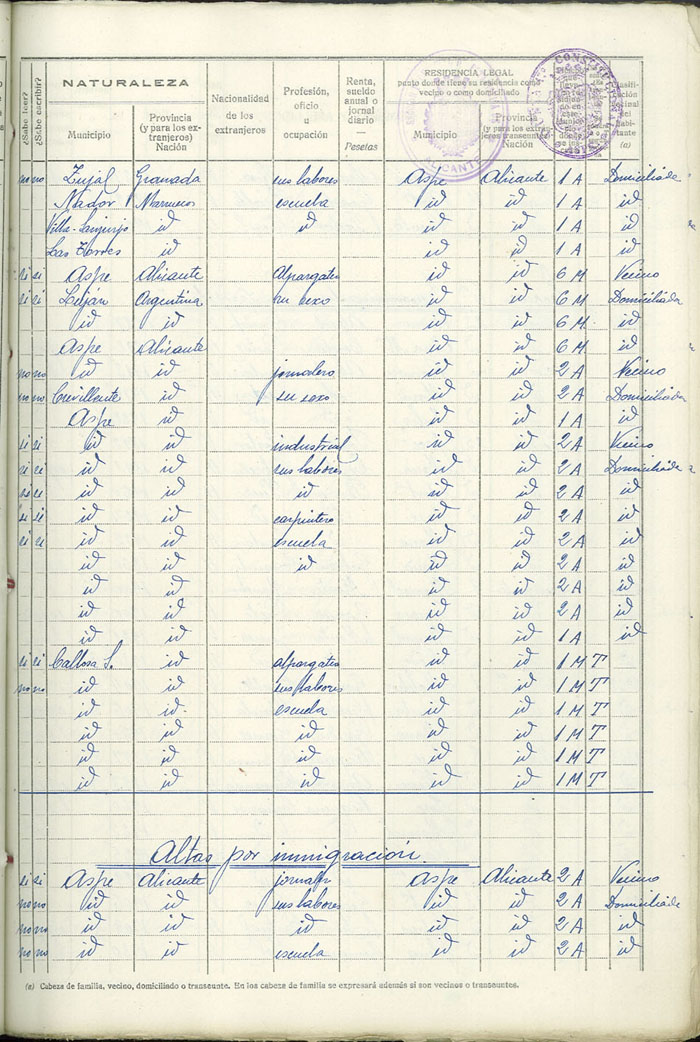 ¿Sabe leer? ¿Sabe escribir? NATURALEZA Nacionalidad de los extranjeros Profesión, oficio u ocupación Renta, sueldo anual o jornal diario — Pesetas RESIDENCIA LEGAL punto donde tiene su residencia como vecino o como domiciliado (a)
Municipio Provincia (y para los extranjeros) Nación Municipio Provincia (y para los extranjeros) Nación
ALICANTE
no no Zujal Granada sus labores Aspe Alicante 1 A Domiciliada
Nador Marruecos escuela id id 1 A id
Villa-Sanjurjo id id id id 1 A id
Las Torres id id id 1 A id
si si Aspe Alicante Alpargatero id id 6 M Vecino
si si Luján Argentina su sexo id id 6 M Domiciliada
id id id id 6 M id
Aspe Alicante id id 6 M id
no no id id jornalero id id 2 A Vecino
no no Crevillente id su sexo id id 2 A Domiciliada
Aspe id id id 1 A id
si si id id industrial id id 2 A Vecino
si si id id sus labores id id 2 A Domiciliada
si si id id id id id 2 A id
si si id id carpintero id id 2 A id
si si id id escuela id id 2 A id
id id id id id 2 A id
id id id id 2 A id
id id id id 2 A id
id id id id 1 A id
si si Callosa S. id alpargatero id id 1 M T
no no id id sus labores id id 1 M T
id id escuela id id 1 M T
id id id id id 1 M T
id id id id id 1 M T
id id id id id 1 M T
Altas por inmigración.
si si Aspe Alicante jornalº Aspe Alicante 2 A Vecino
no no id id sus labores id id 2 A Domiciliada
no no id id id id id 2 A id
no no id id escuela id id 2 A id
(a) Cabeza de familia, vecino, domiciliado o transeunte. En los cabeza de familia se expresará además si son vecinos o transeuntes.